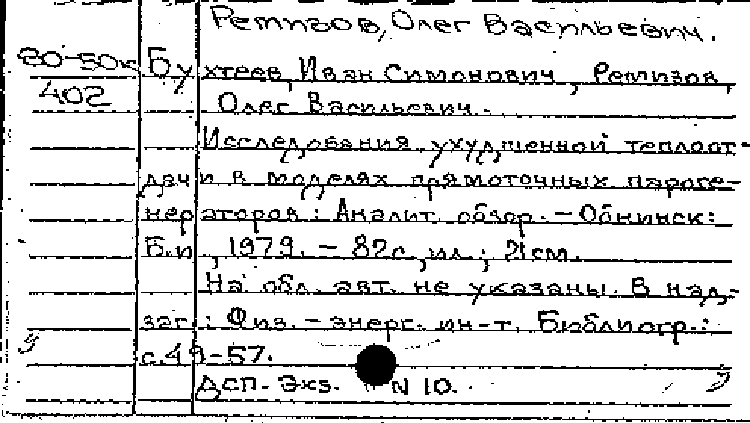 Ремизов, Олег Васильевич.
80-50к
402
Бухтеев, Иван Симонович, Ремизов,
Олег Васильевич.
Исследования ухудшенной теплоот-
дачи в моделях прямоточных пароге-
нераторов: Аналит. обзор. – Обнинск:
Б.и., 1979. – 82с., ил.; 21см.
На обл. авт. не указаны. В над-
заг.: Физ. – энерг. ин-т. Библиогр.:
с.49-57.
ДСП. Экз. N 10.